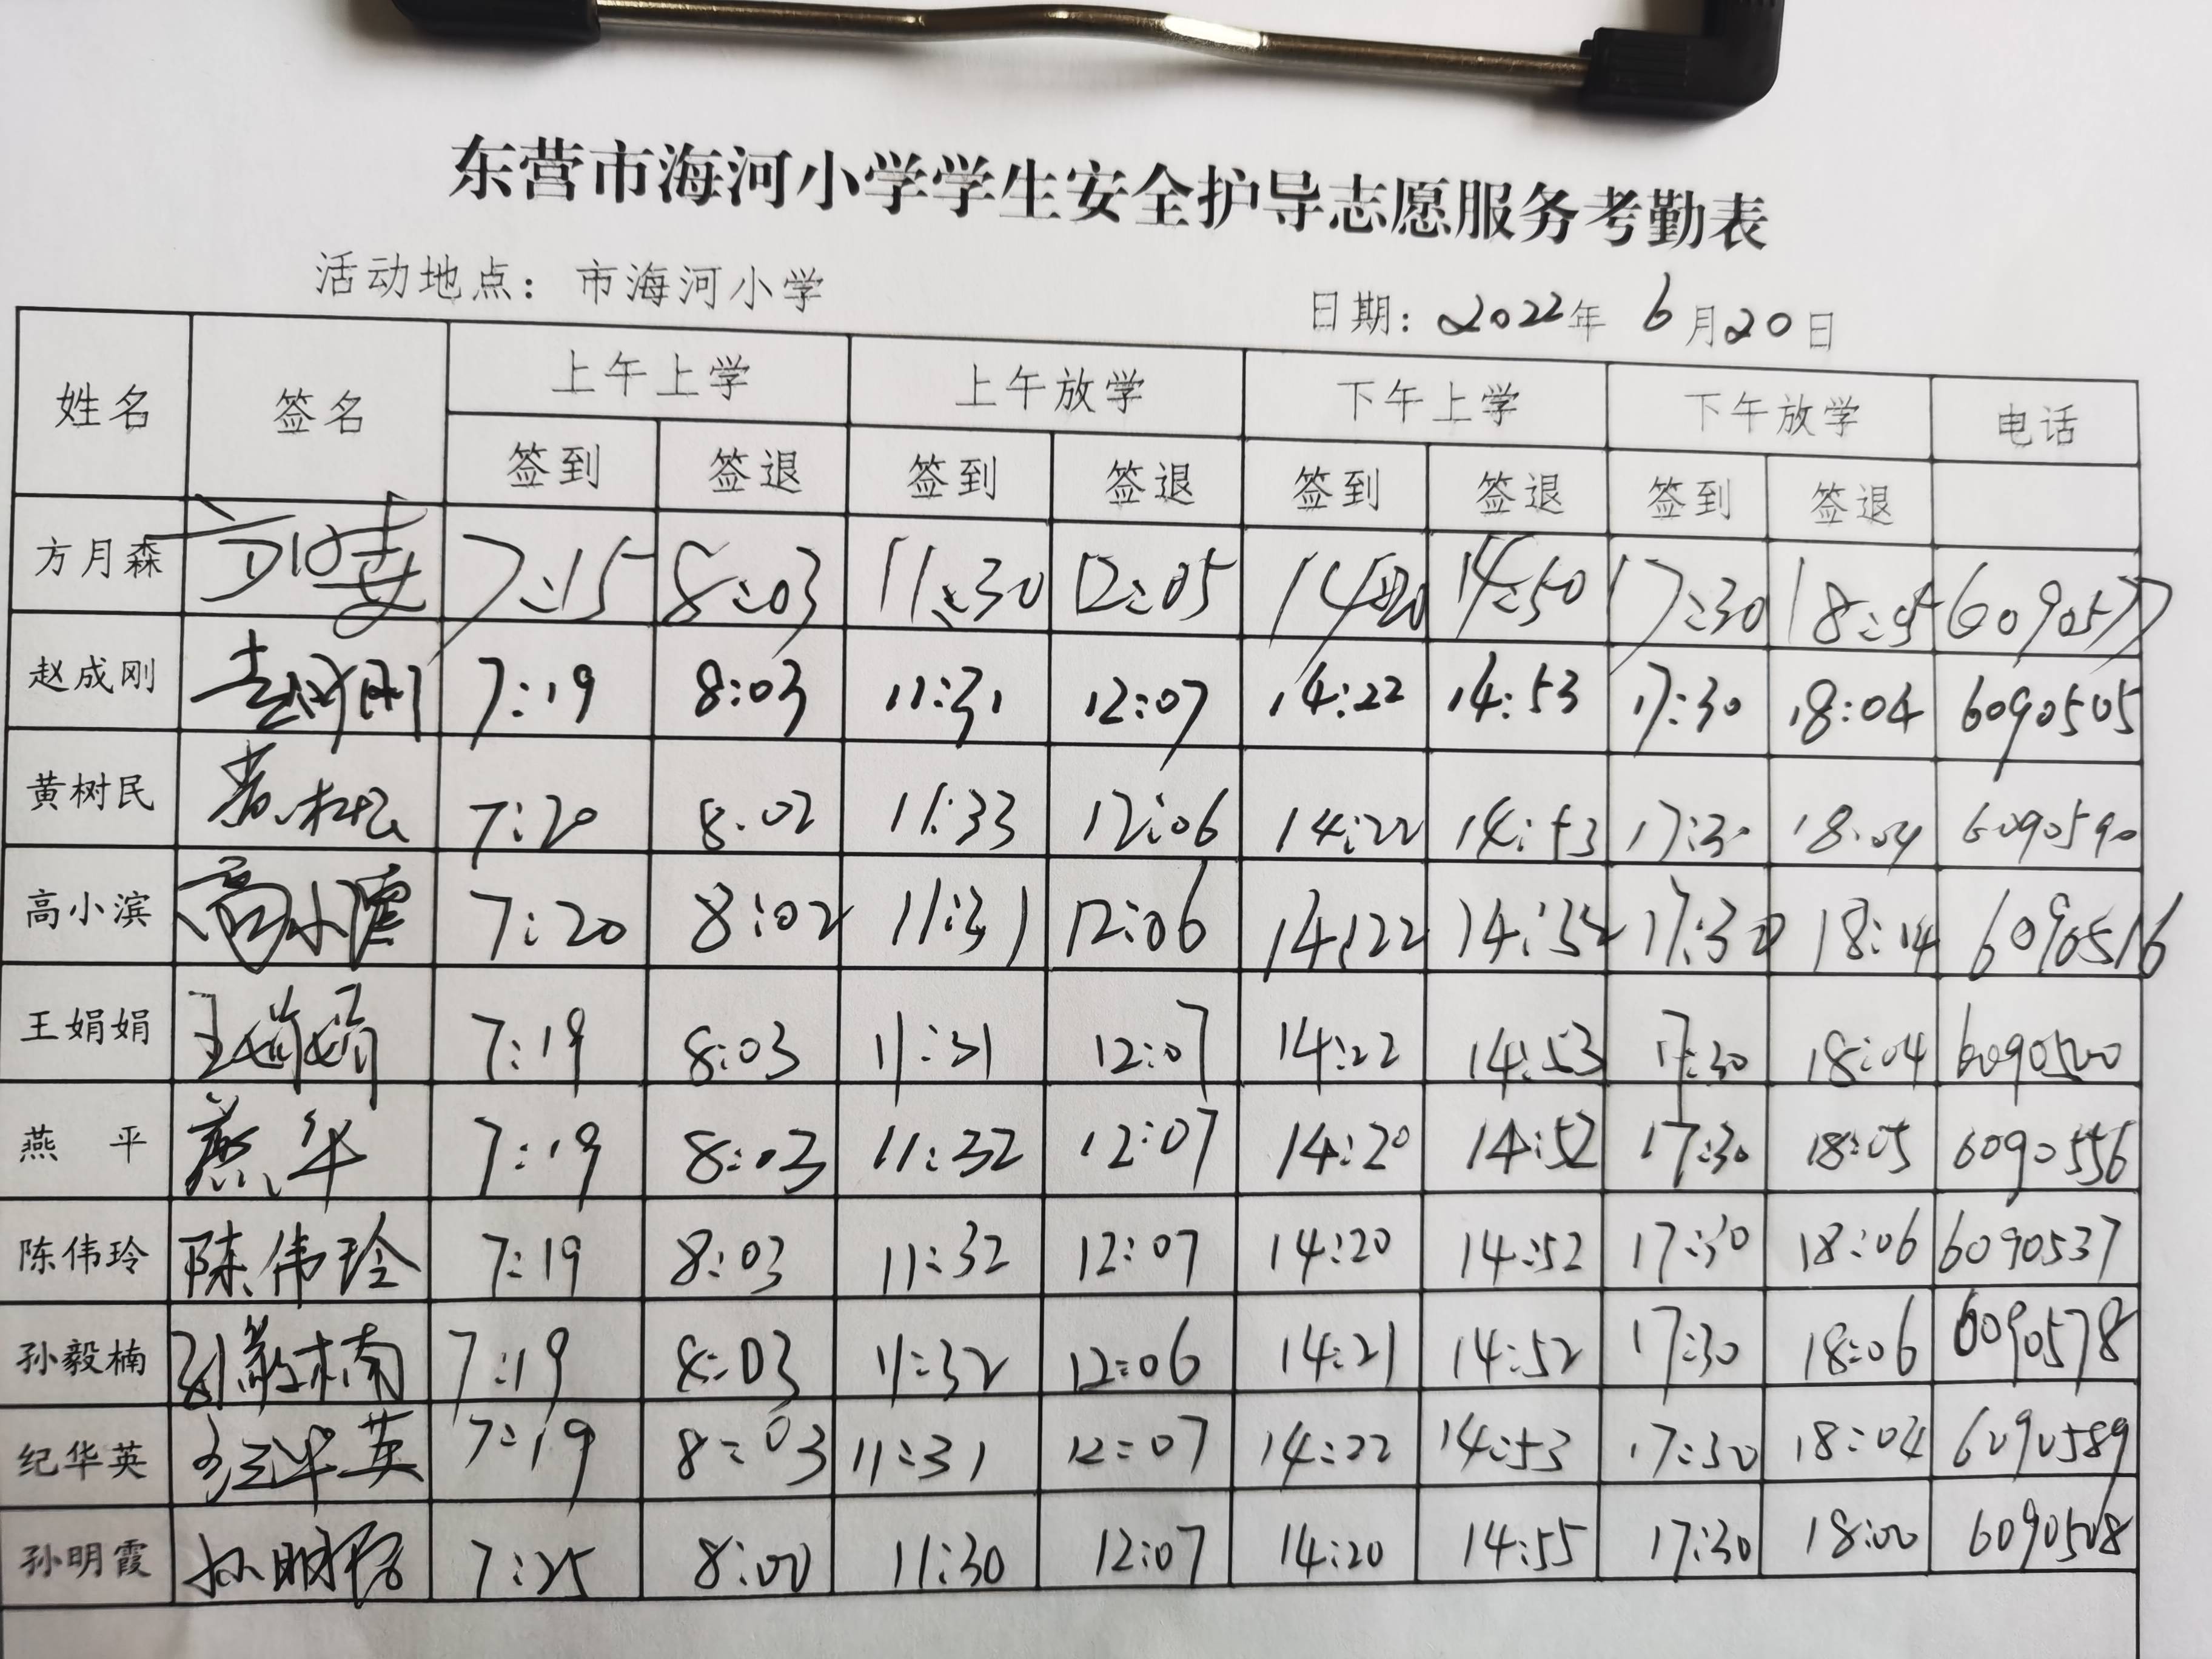 东营市海河小学学生安全护导志愿服务考勤表
活动地点：市海河小学 日期：2022年 6月20日
姓名 签名 上午上学 上午放学 下午上学 下午放学 电话
签到 签退 签到 签退 签到 签退 签到 签退
方月森 7:15 8:03 11:30 12:05 14:50 17:30 18:05 6090577
赵成刚 赵成刚 7:19 8:03 11:31 12:07 14:22 14:53 17:30 18:04 6090505
黄树民 7:20 8:02 11:33 12:06 14:22 14:53 17:30 18:04 6090590
高小滨 高小滨 7:20 8:02 11:31 12:06 14:22 17:30 18:14 6090516
王娟娟 王娟娟 7:19 8:03 11:31 12:07 14:22 14:53 17:30 18:04 6090500
燕 平 燕平 7:19 8:03 11:32 12:07 14:20 14:52 17:30 18:05 6090556
陈伟玲 陈伟玲 7:19 8:03 11:32 12:07 14:20 14:52 17:30 18:06 6090537
孙毅楠 孙毅楠 7:19 8:03 11:32 12:06 14:21 14:52 17:30 18:06 6090578
纪华英 纪华英 7:19 8:03 11:31 12:07 14:22 14:53 17:30 18:04 6090589
孙明霞 孙明霞 7:25 8:00 11:30 12:07 14:20 14:55 17:30 18:00 6090508